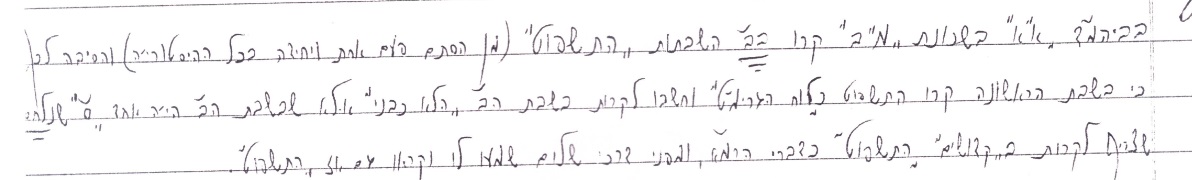 בביהמ"ד "א"א" בשכונת "מ"ב" קרו בב' השבתות "התשפוט" (מן הסתם פעם אחת ויחידה בכל ההיסטוריה) והסיבה לכך
כי בשבת הראשונה קרו התשפוט כלוח וחשבו לקרות בשבת הב' "הלא כבני" אלא שבשבת הב' היה אחד
שצריך לקרות ב"קדושים" "התשפוט" כדברי הרמ"א, ומפני דרכי שלום שמעו לו וקראו עם זו "התשפוט".